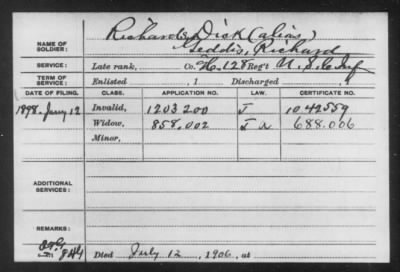 Richards, Dick (alias)
NAME OF SOLDIER: Geddis, Richard
SERVICE: Late rank, Co. H. 128 Reg't U.S.C. Inf
TERM OF SERVICE: Enlisted , 1 Discharged , 1
DATE OF FILING. CLASS. APPLICATION NO. LAW. CERTIFICATE NO.
1898. Jany 12 Invalid, 1203200 J 1042559
Widow, 858.002 J 688.006
Minor,
ADDITIONAL SERVICES:
REMARKS:
Died July 12, 1906, at